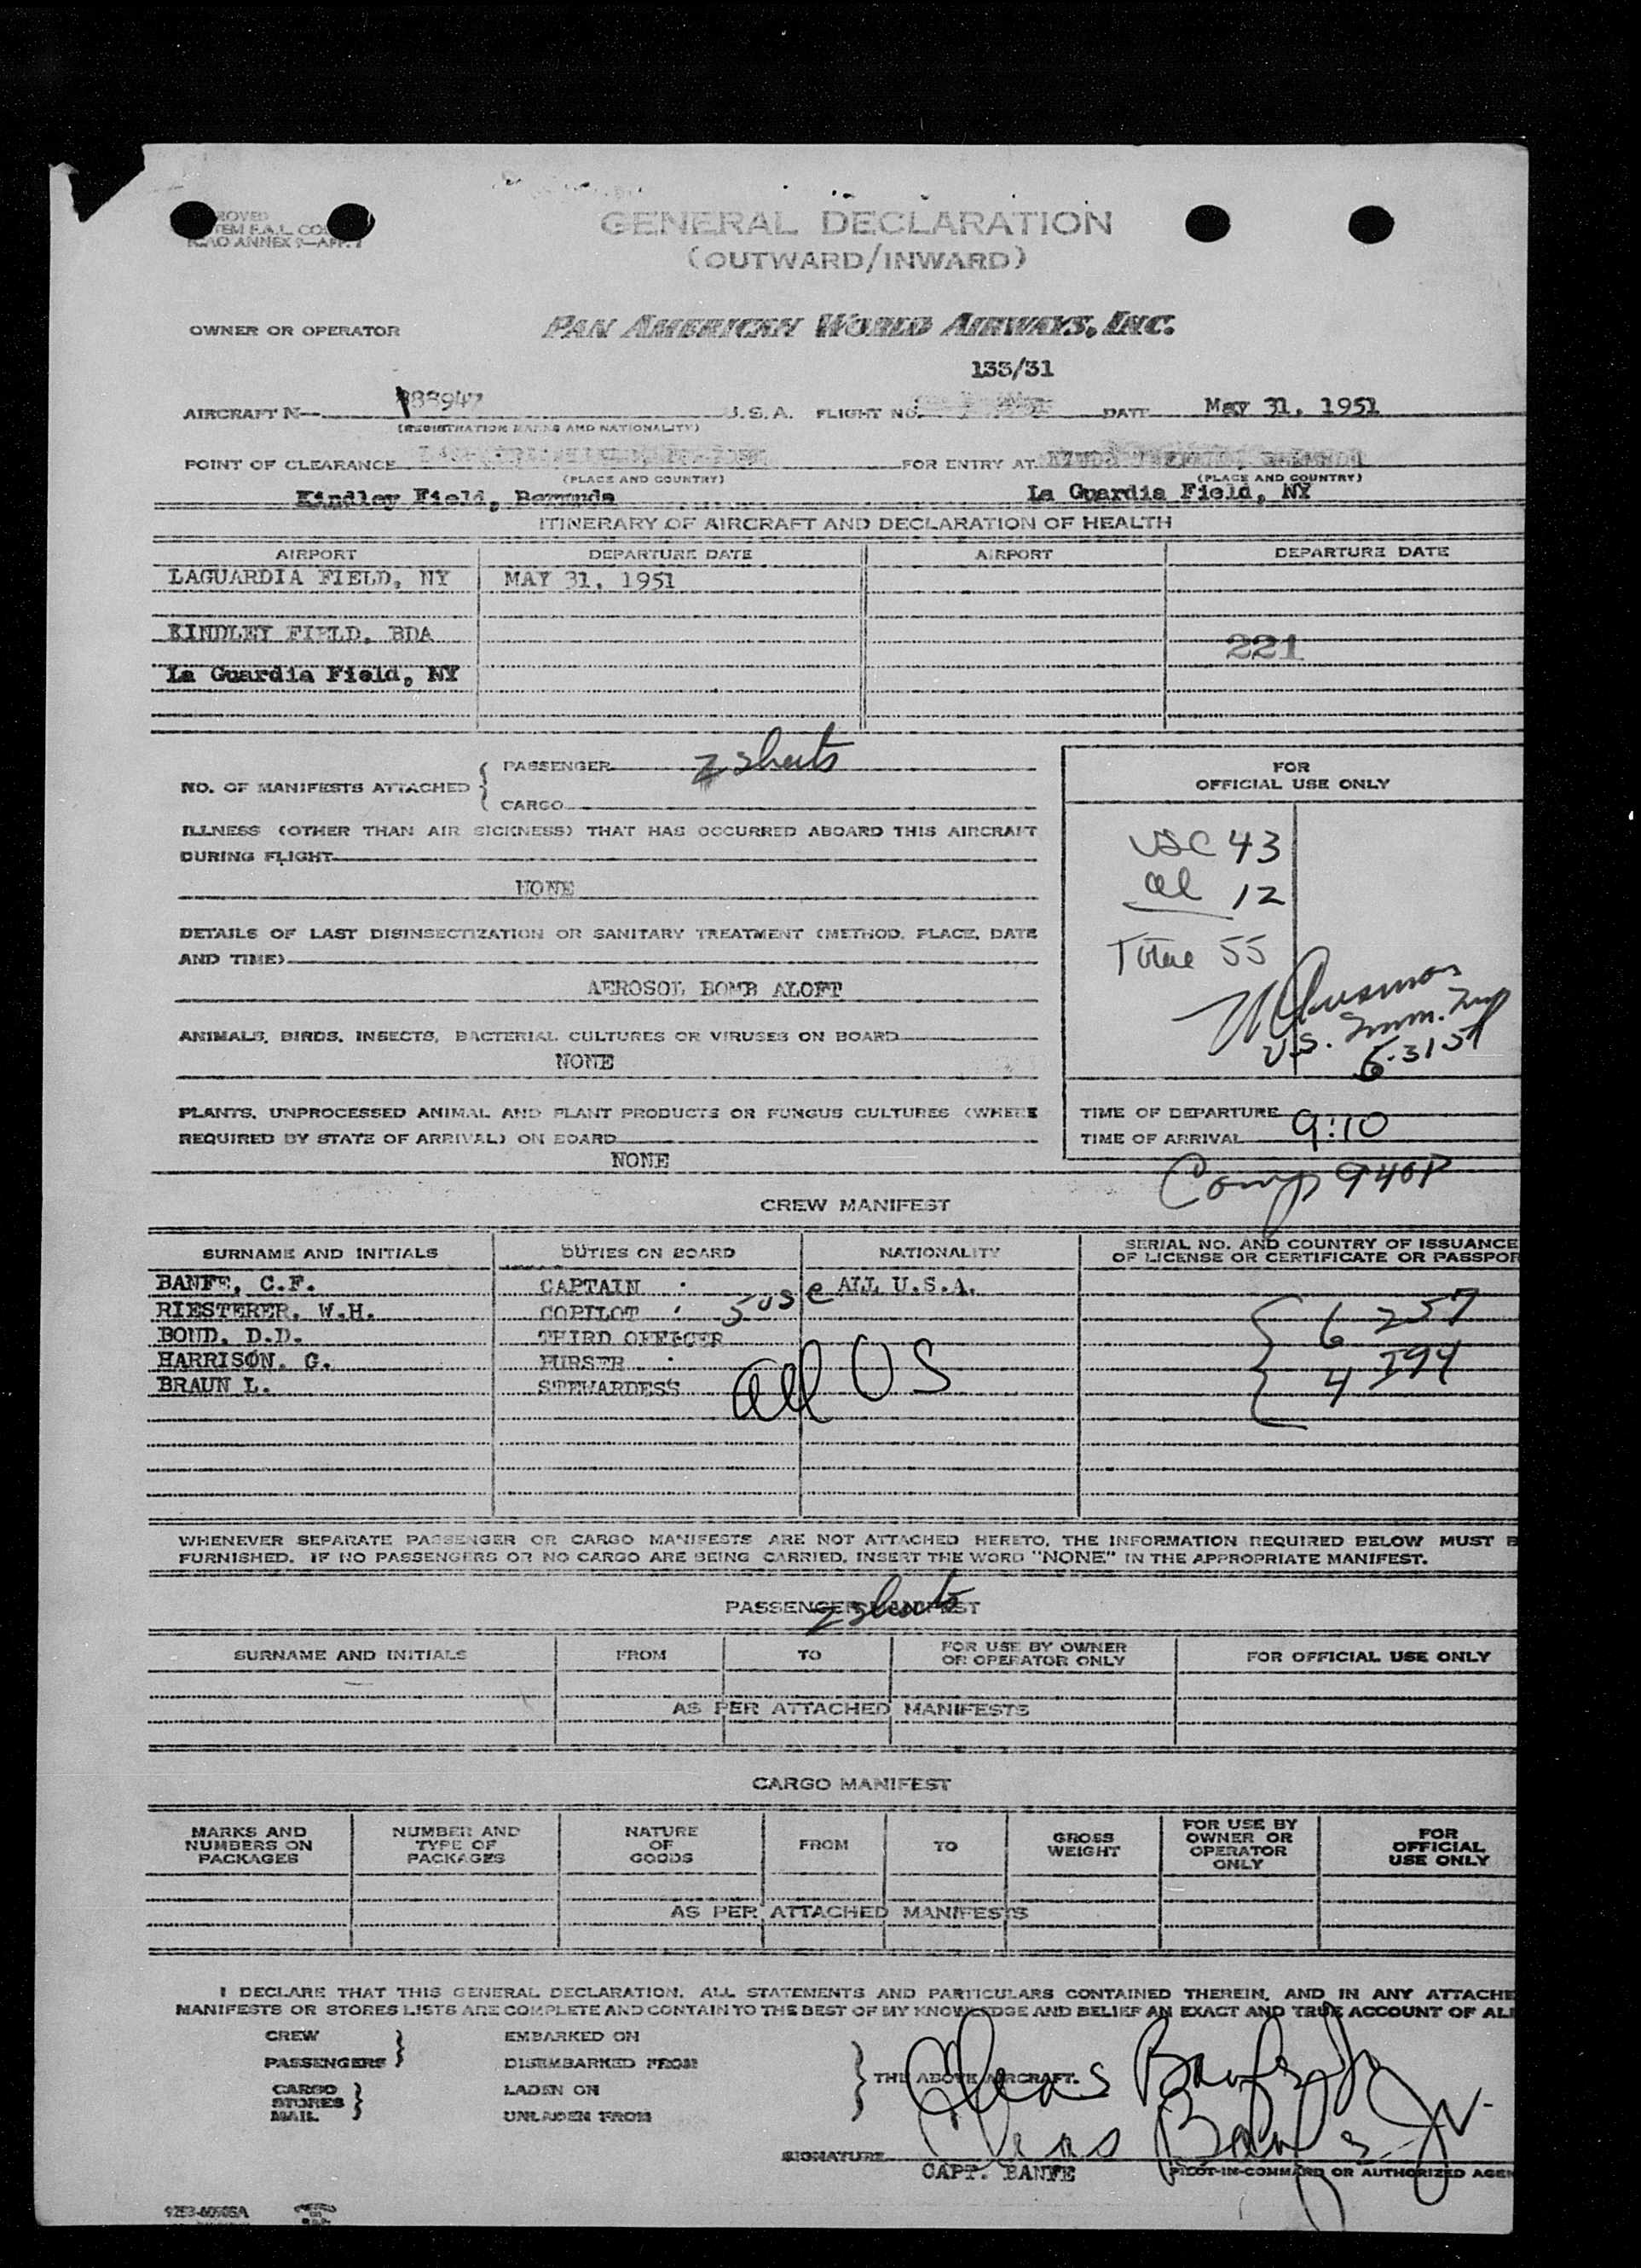 GENERAL DECLARATION
(OUTWARD/INWARD)
OWNER OR OPERATOR PAN AMERICAN WORLD AIRWAYS, INC.
133/31
AIRCRAFT N— 88947 U.S.A. FLIGHT NO. DATE May 31, 1951
(REGISTRATION MARKS AND NATIONALITY)
POINT OF CLEARANCE FOR ENTRY AT
(PLACE AND COUNTRY) (PLACE AND COUNTRY)
Kindley Field, Bermuda La Guardia Field, NY
ITINERARY OF AIRCRAFT AND DECLARATION OF HEALTH
AIRPORT DEPARTURE DATE AIRPORT DEPARTURE DATE
LAGUARDIA FIELD, NY MAY 31, 1951
KINDLEY FIELD, BDA
221
La Guardia Field, NY
NO. OF MANIFESTS ATTACHED { PASSENGER 2 sheets
CARGO
ILLNESS (OTHER THAN AIR SICKNESS) THAT HAS OCCURRED ABOARD THIS AIRCRAFT
DURING FLIGHT
NONE
DETAILS OF LAST DISINSECTIZATION OR SANITARY TREATMENT (METHOD, PLACE, DATE
AND TIME)
AEROSOL BOMB ALOFT
ANIMALS, BIRDS, INSECTS, BACTERIAL CULTURES OR VIRUSES ON BOARD
NONE
PLANTS, UNPROCESSED ANIMAL AND PLANT PRODUCTS OR FUNGUS CULTURES (WHERE
REQUIRED BY STATE OF ARRIVAL) ON BOARD
NONE
FOR
OFFICIAL USE ONLY
USC 43
al 12
Total 55
U.S. Imm. Insp
TIME OF DEPARTURE
TIME OF ARRIVAL 9:10
Comp 940P
CREW MANIFEST
SURNAME AND INITIALS DUTIES ON BOARD NATIONALITY SERIAL NO. AND COUNTRY OF ISSUANCE
OF LICENSE OR CERTIFICATE OR PASSPOR
BANFE, C.F. CAPTAIN ALL U.S.A.
RIESTERER, W.H. COPILOT 5 USC 6 257
BOND, D.D. THIRD OFFICER
HARRISON, G. PURSER all US 4 I94
BRAUN L. STEWARDESS
WHENEVER SEPARATE PASSENGER OR CARGO MANIFESTS ARE NOT ATTACHED HERETO, THE INFORMATION REQUIRED BELOW MUST B
FURNISHED. IF NO PASSENGERS OR NO CARGO ARE BEING CARRIED, INSERT THE WORD "NONE" IN THE APPROPRIATE MANIFEST.
PASSENGER MANIFEST
2 sheets
SURNAME AND INITIALS FROM TO FOR USE BY OWNER
OR OPERATOR ONLY FOR OFFICIAL USE ONLY
AS PER ATTACHED MANIFESTS
CARGO MANIFEST
MARKS AND
NUMBERS ON
PACKAGES
NUMBER AND
TYPE OF
PACKAGES
NATURE
OF
GOODS
FROM
TO
GROSS
WEIGHT
FOR USE BY
OWNER OR
OPERATOR
ONLY
FOR
OFFICIAL
USE ONLY
AS PER ATTACHED MANIFESTS
I DECLARE THAT THIS GENERAL DECLARATION, ALL STATEMENTS AND PARTICULARS CONTAINED THEREIN, AND IN ANY ATTACHE
MANIFESTS OR STORES LISTS ARE COMPLETE AND CONTAIN TO THE BEST OF MY KNOWLEDGE AND BELIEF AN EXACT AND TRUE ACCOUNT OF ALL
CREW EMBARKED ON
PASSENGERS } DISEMBARKED FROM
THE ABOVE AIRCRAFT.
CARGO LADEN ON
STORES }
MAIL UNLADEN FROM
SIGNATURE
CAPT. BANFE PILOT-IN-COMMAND OR AUTHORIZED AGEN